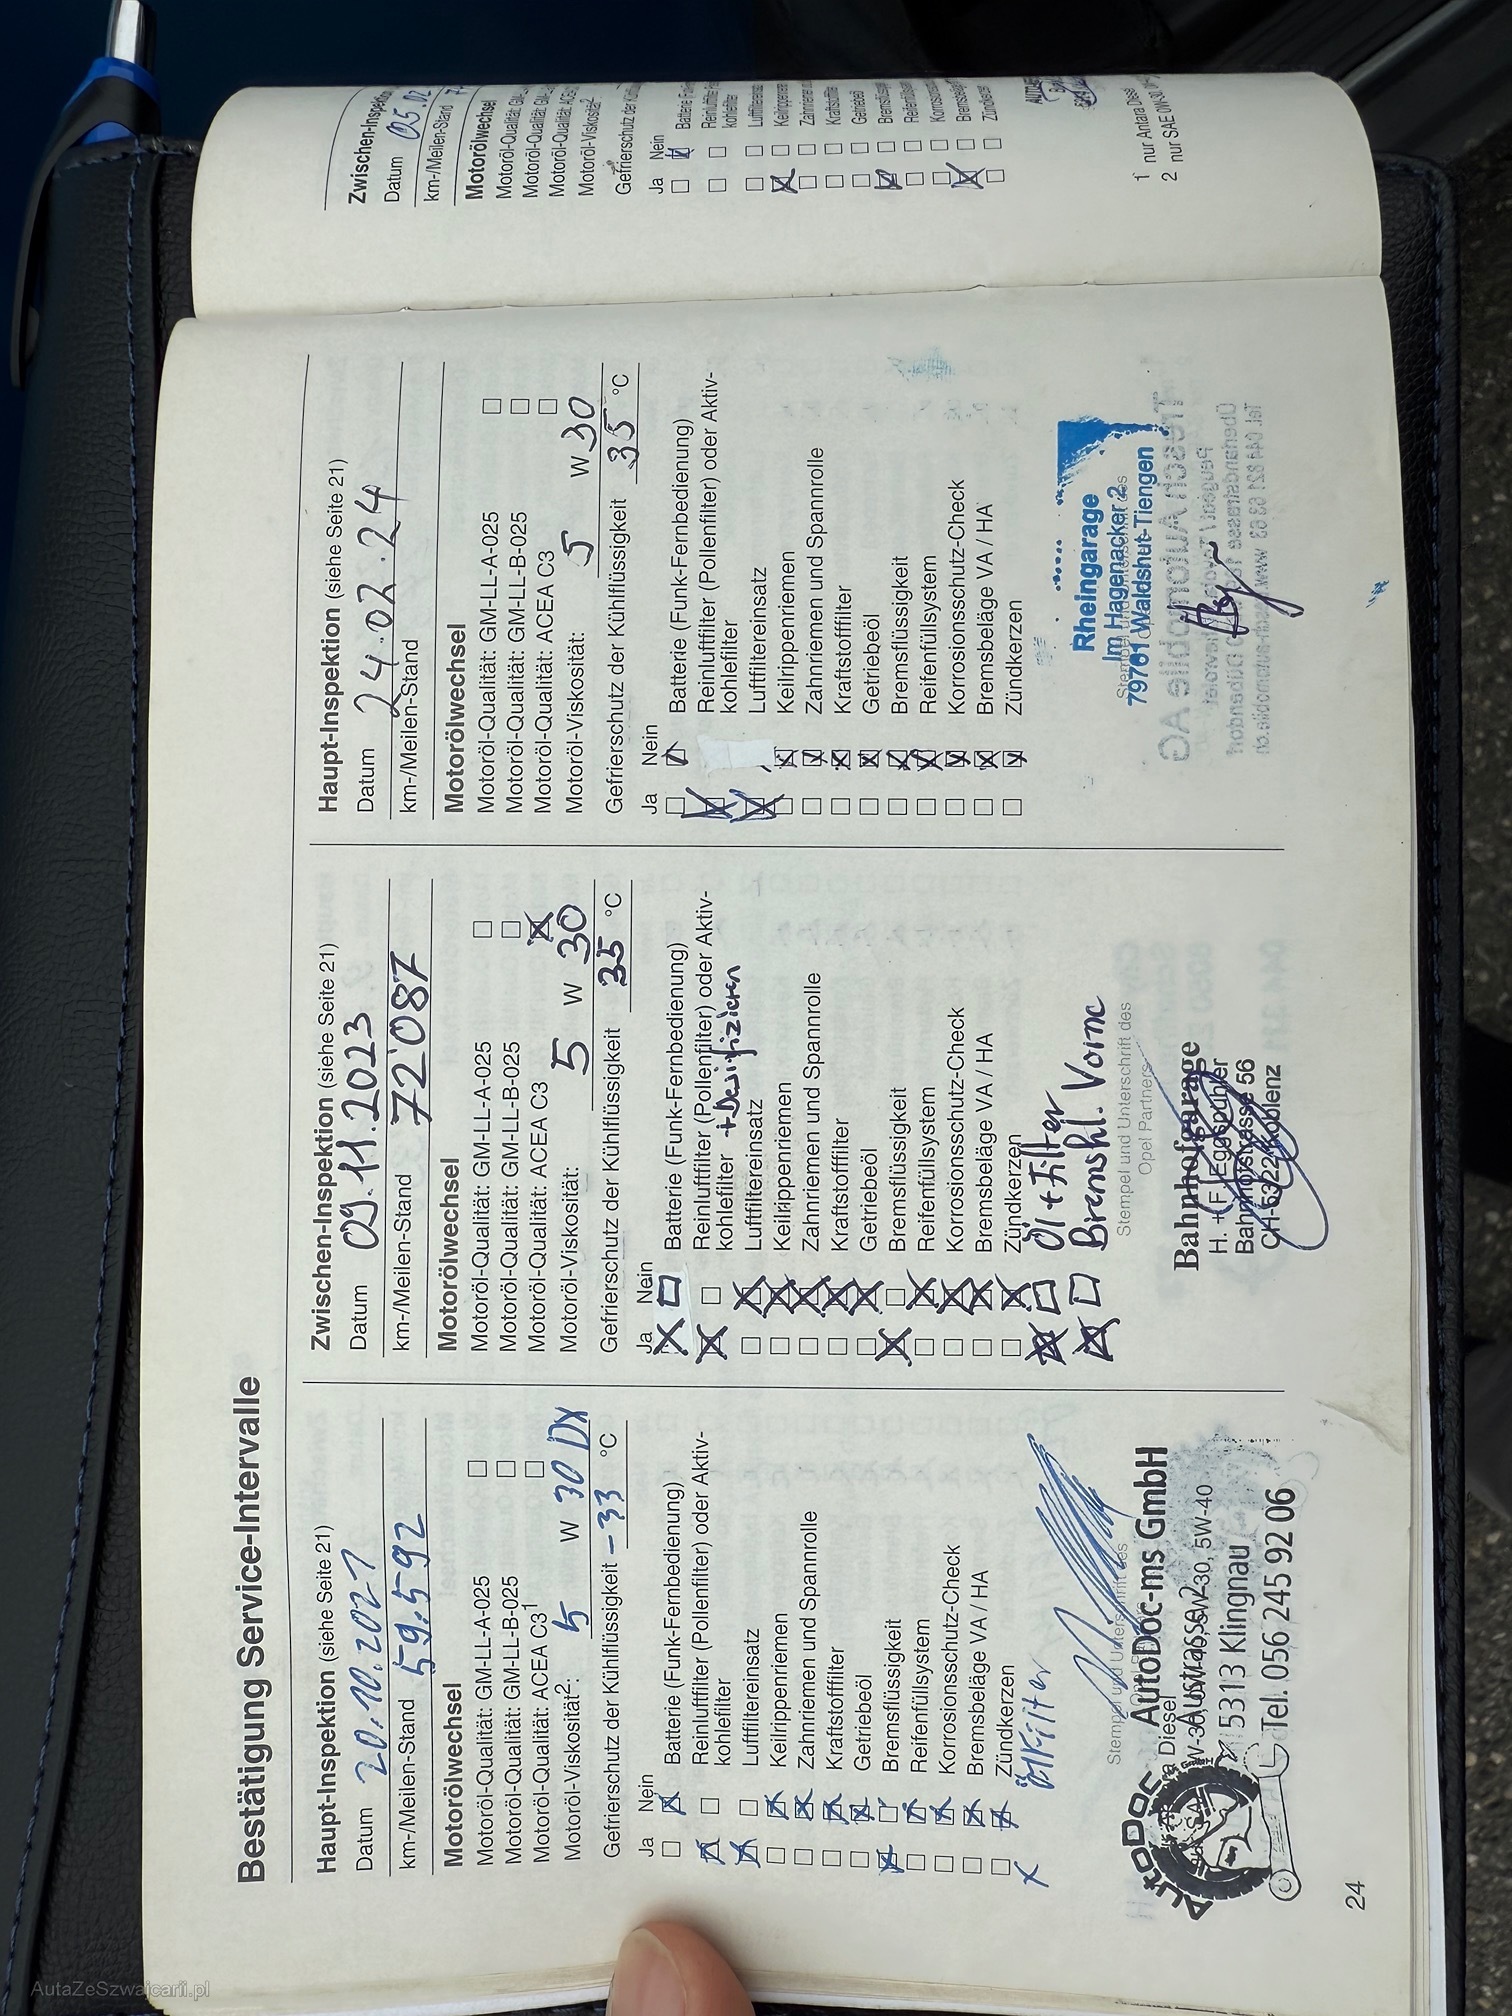 Bestätigung Service-Intervalle
Haupt-Inspektion (siehe Seite 21)
Datum 20.10.2021
km-/Meilen-Stand 59.592
Motorölwechsel
Motoröl-Qualität: GM-LL-A-025 □
Motoröl-Qualität: GM-LL-B-025 □
Motoröl-Qualität: ACEA C3¹ □
Motoröl-Viskosität²: 5 W 30
Gefrierschutz der Kühlflüssigkeit -33 °C
Ja Nein
Batterie (Funk-Fernbedienung)
Reinluftfilter (Pollenfilter) oder Aktiv-
kohlefilter
Luftfiltereinsatz
Keilrippenriemen
Zahnriemen und Spannrolle
Kraftstofffilter
Getriebeöl
Bremsflüssigkeit
Reifenfüllsystem
Korrosionsschutz-Check
Bremsbeläge VA / HA
Zündkerzen
x Ölfilter
Stempel und Unterschrift des
AutoDoc
AutoDoc-ms GmbH
Austrasse 2
5313 Klingnau
Tel. 056 245 92 06
Zwischen-Inspektion (siehe Seite 21)
Datum 09.11.2023
km-/Meilen-Stand 72'087
Motorölwechsel
Motoröl-Qualität: GM-LL-A-025 □
Motoröl-Qualität: GM-LL-B-025 □
Motoröl-Qualität: ACEA C3 ☒
Motoröl-Viskosität: 5 W 30
Gefrierschutz der Kühlflüssigkeit 35 °C
Ja Nein
Batterie (Funk-Fernbedienung)
Reinluftfilter (Pollenfilter) oder Aktiv-
kohlefilter + Desinfizieren
Luftfiltereinsatz
Keilrippenriemen
Zahnriemen und Spannrolle
Kraftstofffilter
Getriebeöl
Bremsflüssigkeit
Reifenfüllsystem
Korrosionsschutz-Check
Bremsbeläge VA / HA
Zündkerzen
Öl + Filter
Bremsbl. Vorne
Stempel und Unterschrift des
Opel Partners
Bahnhofgarage
H. + F. Eggspühler
Bahnhofstrasse 56
CH-5322 Koblenz
Haupt-Inspektion (siehe Seite 21)
Datum 24.02.24
km-/Meilen-Stand
Motorölwechsel
Motoröl-Qualität: GM-LL-A-025 □
Motoröl-Qualität: GM-LL-B-025 □
Motoröl-Qualität: ACEA C3 □
Motoröl-Viskosität: 5 W 30
Gefrierschutz der Kühlflüssigkeit 35 °C
Ja Nein
Batterie (Funk-Fernbedienung)
Reinluftfilter (Pollenfilter) oder Aktiv-
kohlefilter
Luftfiltereinsatz
Keilrippenriemen
Zahnriemen und Spannrolle
Kraftstofffilter
Getriebeöl
Bremsflüssigkeit
Reifenfüllsystem
Korrosionsschutz-Check
Bremsbeläge VA / HA
Zündkerzen
Rheingarage
Im Hagenacker 2
79761 Waldshut-Tiengen
24
Zwischen-Inspektion
Datum 05.02
km-/Meilen-Stand
Motorölwechsel
Motoröl-Qualität: GM-
Motoröl-Qualität: GM-
Motoröl-Qualität: ACE
Motoröl-Viskosität²
Gefrierschutz der
Ja Nein
Batterie
Reinluftfilter
kohlefilter
Keilrippenriemen
Getriebeöl
Zündkerzen
1 nur Antara Diese
2 nur SAE 0W-30,
AutaZeSzwajcarii.pl